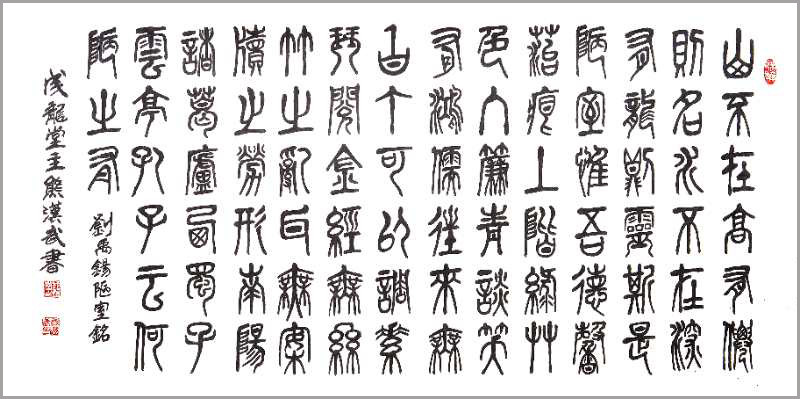 山不在高有僊
則名水不在深
有龍則靈斯是
陋室惟吾德馨
苔痕上階綠艸
色入簾青談笑
有鴻儒往來無
白丁可以調素
琴閱金經無絲
竹之亂耳無案
牘之勞形南陽
諸葛廬西蜀子
雲亭孔子云何
陋之有
劉禹錫陋室銘
成龍堂主熊漢武書